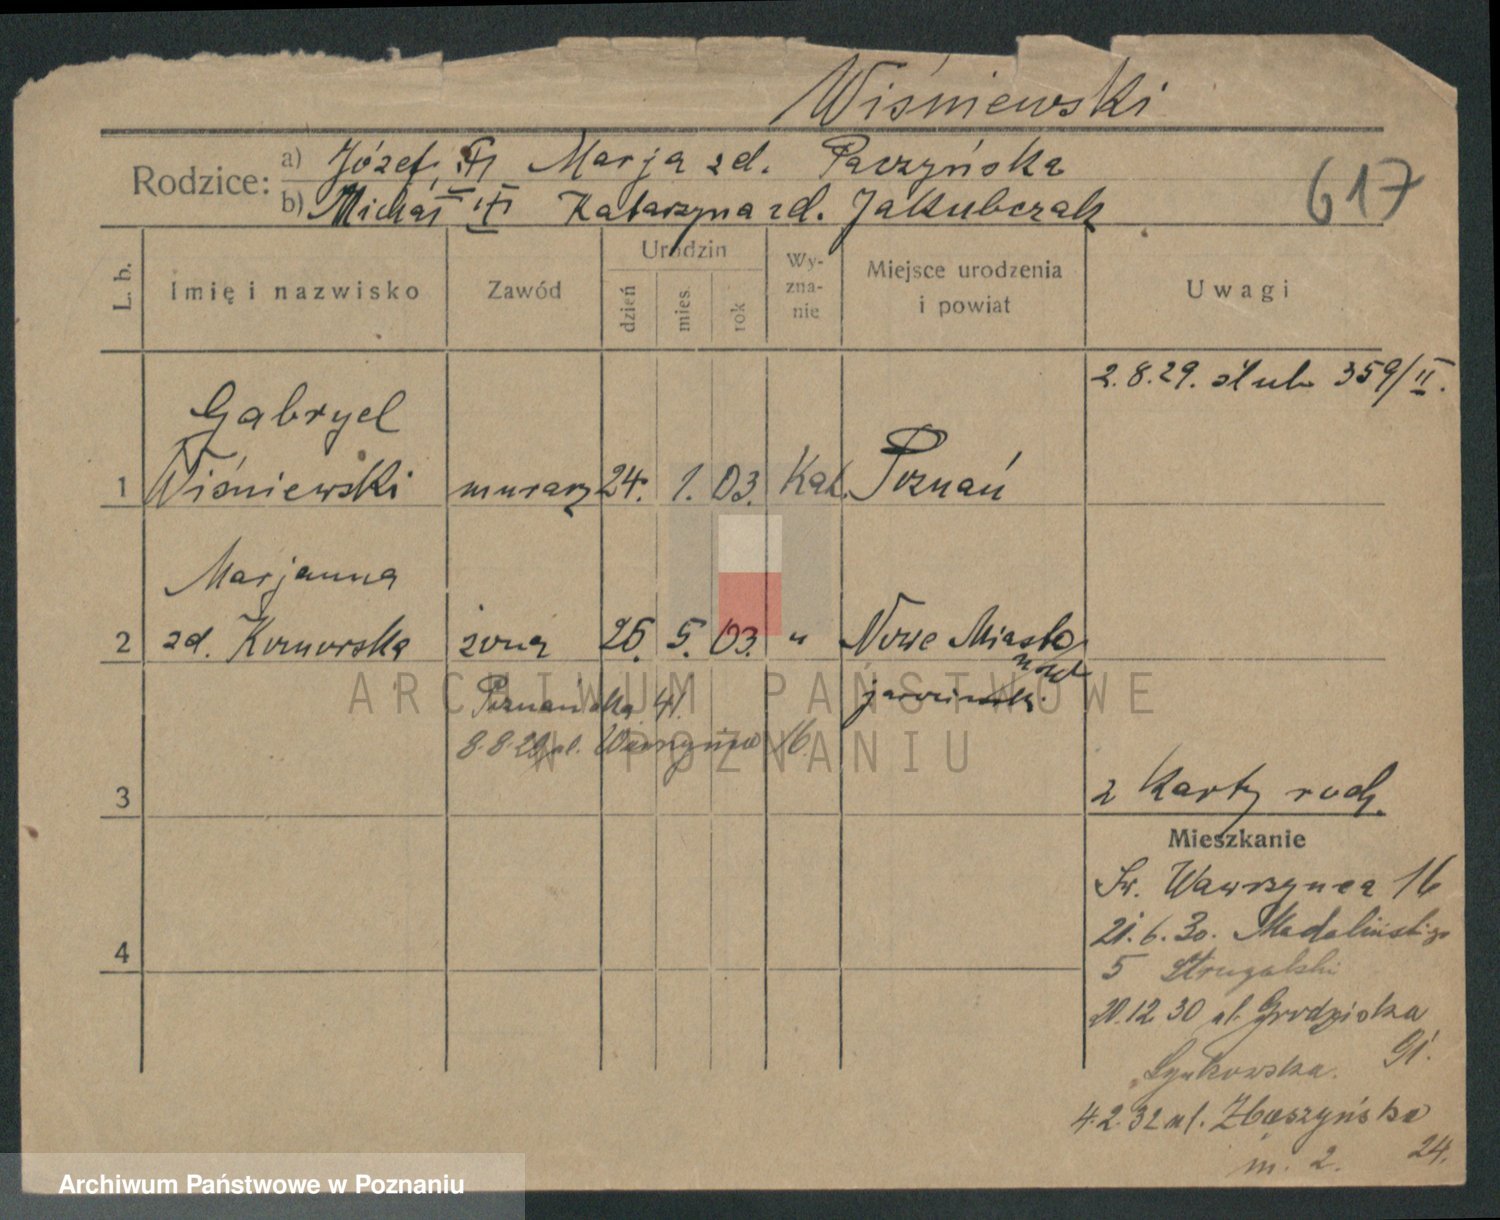 Wiśniewski
Rodzice:
a) Józef, Marja zd. Paczyńska
b) Michał Katarzyna zd. Jakubczak
617
L. b.
Imię i nazwisko
Zawód
Urodzin
dzień
mies.
rok
Wy-
zna-
nie
Miejsce urodzenia
i powiat
Uwagi
2.8.29. ślub 359/II.
Gabryel
1 Wiśniewski murarz 24. 1. 03. Kat. Poznań
Marjanna
2 zd. żona 5. 03. " Nowe Miasto
Poznańska 41.
8.8.29 ul. Wawrzyńca 16
ARCHIWUM PAŃSTWOWE
W POZNANIU
3
2 Karty rodz.
Mieszkanie
Św. Wawrzyńca 16
21.6.30. Madalińskiego
5 Strugalski
20.12.30 ul. Grodziska
91.
4.2.32 ul. Zbąszyńska
24.
m. 2.
4
Archiwum Państwowe w Poznaniu